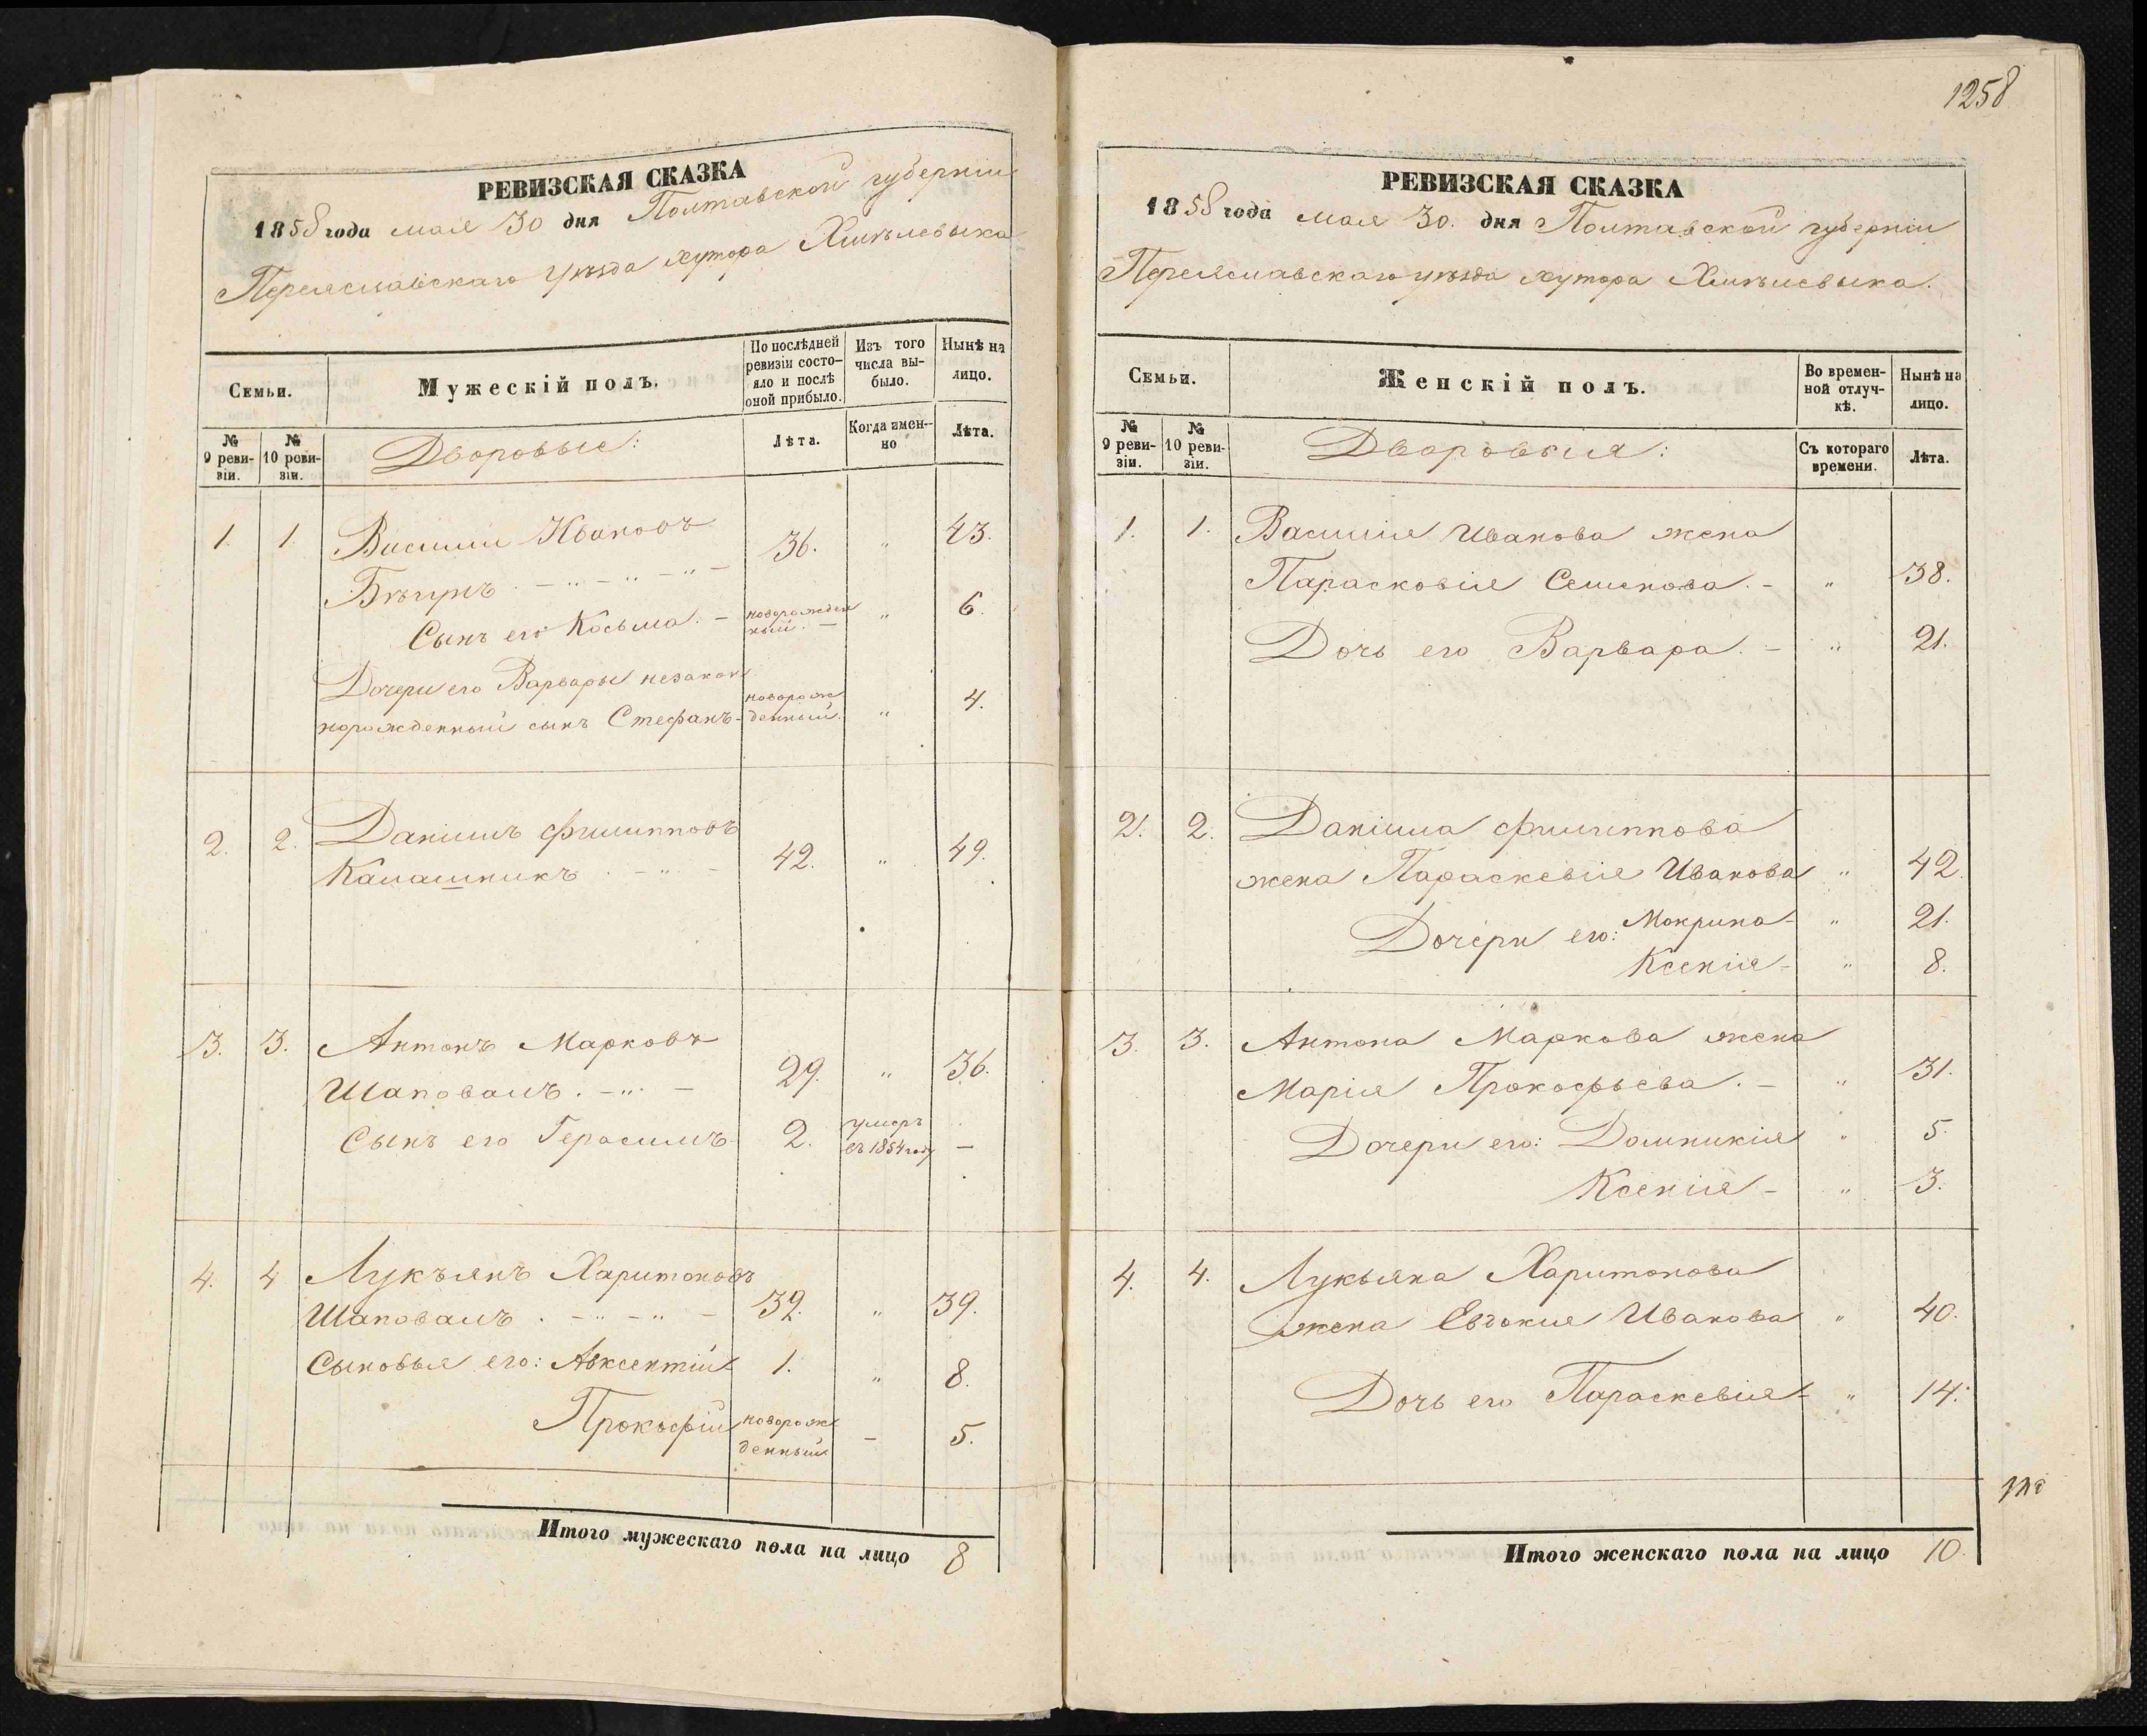 РЕВИЗСКАЯ СКАЗКА
1858 года мая 30 дня Полтавской губерніи
Переяславскаго уѣзда хутора Хмѣлевыка
Семьи.
Мужескій полъ.
По послѣдней ревизіи состо-
яло и послѣ
оной прибыло.
Изъ того
числа вы-
было.
Нынѣ на
лицо.
№
9 реви-
зіи.
№
10 реви-
зіи.
Дворовые:
Лѣта.
Когда имен-
но
Лѣта.
1. 1. Василий Ивановъ
Бѣгунъ . - „ - „ - „ - 36. „ 43.
Сынъ его Косьма. - новорожден
ный. - „ 6.
Дочери его Варвары незакон
норожденный сынъ Стефанъ - новорож
денный. „ 4.
2. 2. Даніилъ Филипповъ
Калашникъ . - „ - 42. „ 49.
3. 3. Антонъ Марковъ
Шаповалъ . - „ - 29. „ 36.
Сынъ его Герасимъ - 2. умеръ
въ 1854 году -
4. 4 Лукъянъ Харитоновъ
Шаповалъ . - „ - „ - 32. „ 39.
Сыновья его: Авксентій 1. „ 8.
Прокофій новорож
денный - 5.
Итого мужескаго пола на лицо 8
1258
РЕВИЗСКАЯ СКАЗКА
1858 года мая 30. дня Полтавской губерніи
Переяславскаго уѣзда хутора Хмѣлевыка.
Семьи.
Женскій полъ.
Во времен-
ной отлуч-
кѣ.
Нынѣ на
лицо.
№
9 реви-
зіи.
№
10 реви-
зіи.
Дворовыя:
Съ котораго
времени.
Лѣта.
1. 1. Василія Иванова жена
Парасковія Семенова. - „ 38.
Дочь его Варвара. - „ 21.
2. 2. Даніила Филиппова
жена Параскевія Иванова „ 42.
Дочери его: Мокрина - „ 21.
Ксенія - „ 8.
3. 3. Антона Маркова жена
Марія Прокофьева. - „ 31.
Дочери его: Домникія „ 5.
Ксенія - „ 3.
4. 4. Лукьяна Харитонова
жена Евдокия Иванова „ 40.
Дочь его Параскевія - „ 14.
Итого женскаго пола на лицо 10.